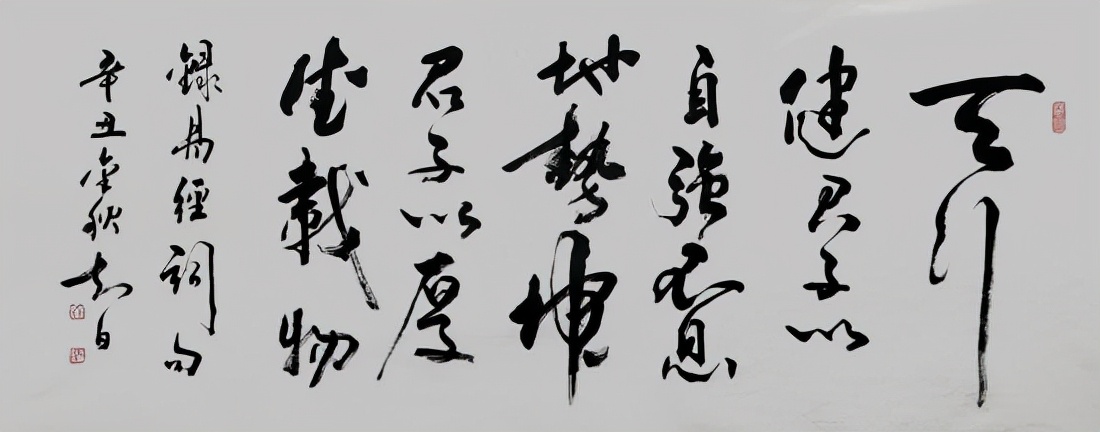 天行
健君子以
自強不息
地勢坤
君子以厚
德載物
錄易經詞句
辛丑金秋知白